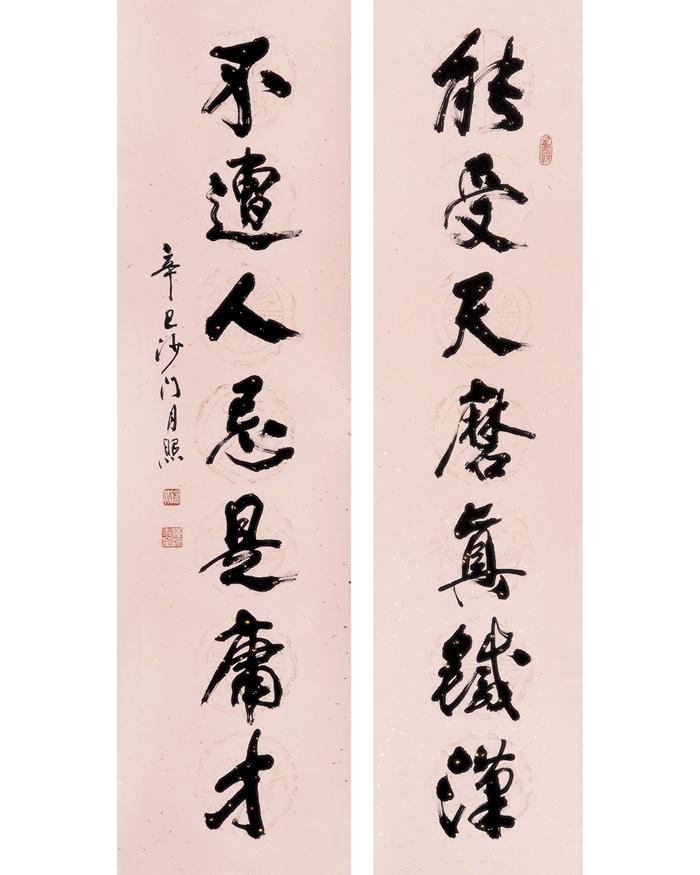 能受天磨真鐵漢
不遭人忌是庸才
辛巳沙門月照